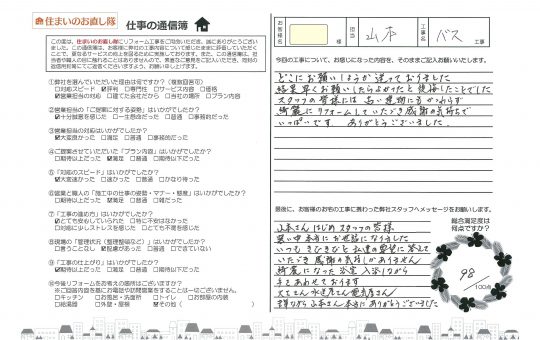 住まいのお直し隊 仕事の通信簿
①弊社を選んでいただいた理由は何ですか?（複数回答可）
□対応スピード ☑評判 □専門性 □サービス内容 □価格
□営業担当の対応 □建てた会社だから □当社の場所 □プラン内容
②営業担当の「ご提案に対する姿勢」はいかがでしたか?
☑十分誠意を感じた □一生懸命だった □普通 □事務的だった
③営業担当の対応はいかがでしたか?
☑大変良かった □満足 □普通 □事務的だった
④ご提案させていただいた「プラン内容」はいかがでしたか?
□期待以上だった ☑満足 □普通 □期待以下だった
⑤「対応のスピード」はいかがでしたか?
☑大変速かった □速い □普通 □かなり待った
⑥営業と職人の「施工中の姿勢・マナー・態度」はいかがでしたか?
□期待以上だった ☑満足 □普通 □期待以下だった
⑦「工事の進め方」はいかがでしたか?
☑とても安心していられた □特に不安はなかった
□対応に少しストレスを感じた □とても不高を感じた
⑧現場の「管理状況（整理整頓など）」はいかがでしたか?
□言うことなし ☑配慮があった □普通 □できていない
⑨「工事の仕上がり」はいかがでしたか?
□期待以上だった ☑満足 □普通 □期待以下だった
⑩今後リフォームをお考えの箇所はございますか?
□キッチン □お風呂・洗面所 □トイレ □お部屋の内装
□給湯器 □外壁・屋根 ☑その他（ ）
お客様名
担当 山本
工事名 バス 工事
今回の工事について、お感じになった内容を、そのままご記入お願いいたします。
どこにお願いしようか迷っておりました
結果早くお願いしたらよかったと後悔したことでした
スタッフの皆様には古い建物にもかかわらず
綺麗にリフォームしていただき感謝の気持ちで
いっぱいです。ありがとうございました。
最後に、お客様のお宅の工事に携わった弊社スタッフへメッセージをお願いします。
山本さんはじめスタッフの皆様
暑い中本当にお世話になりました
いつもてきぱきと私達の要望に答えて
いただき感謝の気持しかありません
綺麗になった浴室入浴しながら
手をあわせております
大工さん水道屋さん電気屋さん
山本さん本当にありがとうございました
総合満足度は
何点ですか?
98
/100点